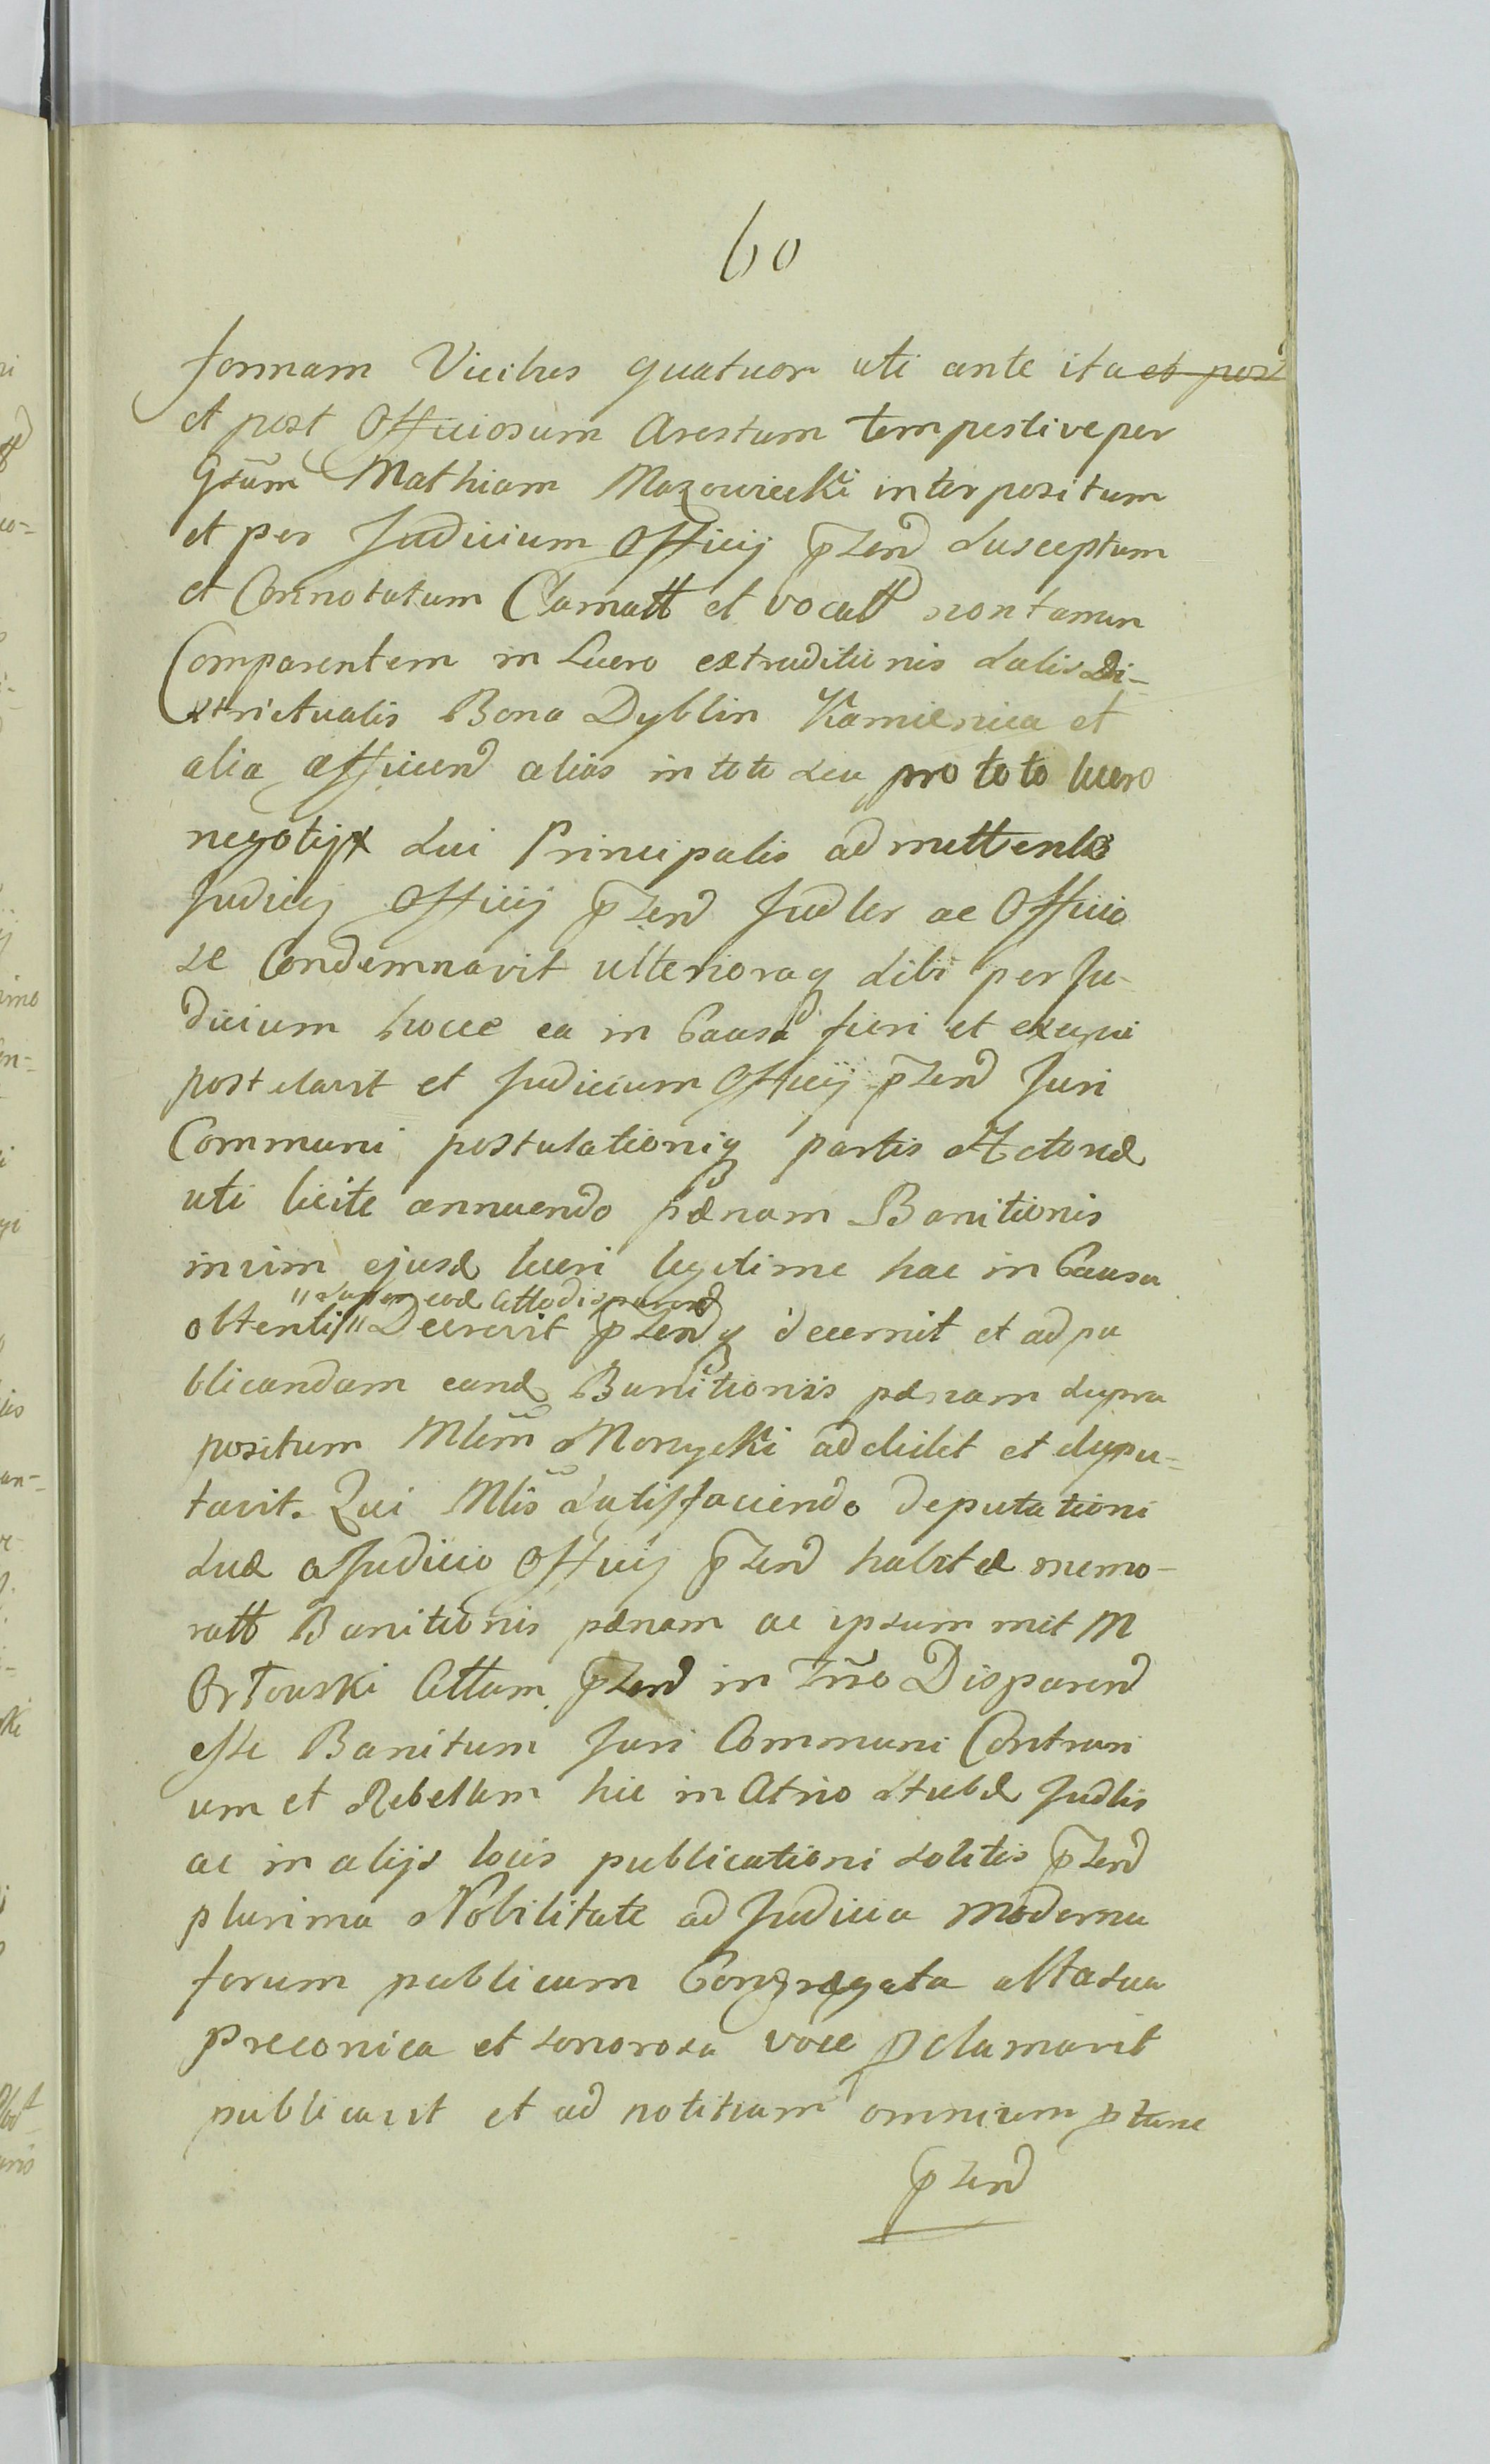 60
formam Vicibus quatuor uti ante ita et post
et post Officiosum Arestum tempestive per
Gsum Mathiam Mazowiecki interpositum
et per Judicium Officij pnd Susceptum
et Connotatum Clamatt et vocatt non tamen
Comparentem in Lucro extraditionis Salis Di-
strictualis Bona Dyblin Kamienica et
alia afficiend alias in toto seu pro toto lucro
negotij sui Principalis admittente
Judicij Officij pnd Judler ac Officio
se Condemnavit ulterioraq sibi per Ju-
dicium hocce ea in Causa fieri et exequi
postulavit et Judicium Officij pnd Juri
Communi postulationiq partis Actoreæ
uti licite annuendo pænam Banitionis
in vim ejusd lucri legitime hac in Causa
"super eod Atto disparend
obtenti" Decrevit pndq decernit et ad pu
blicandam eand Banitionis pænam supra
positum Mlem Monycki addidit et depu-
tavit. Qui Mlis Satisfaciendo deputationi
suæ a Judicio Officij pnd habitæ memo-
ratt Banitionis pænam ac ipsummet M
Orłowski Attum pnd in Tno Disparend
esse Banitum Juri Communi Contrari
um et Rebellem hic in Atrio Stubæ Judlis
ac in alijs locis publicationi solitis pnd
plurima Nobilitate ad Judicia moderna
forum publicum Congregata alta sua
preconica et sonorosa voce pclamavit
publicavit et ad notitiam omnium ptunc
pnd